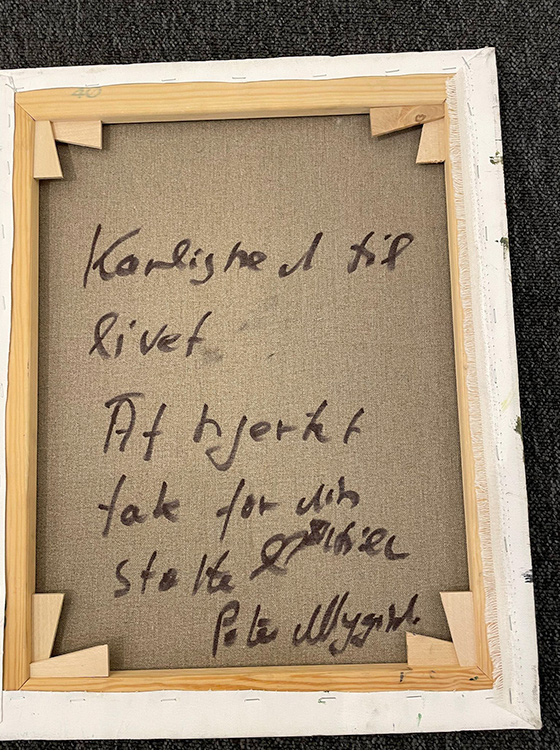 40
Kærlighed til
livet
Af hjertet
tak for din
støtte &
Peter Mygind